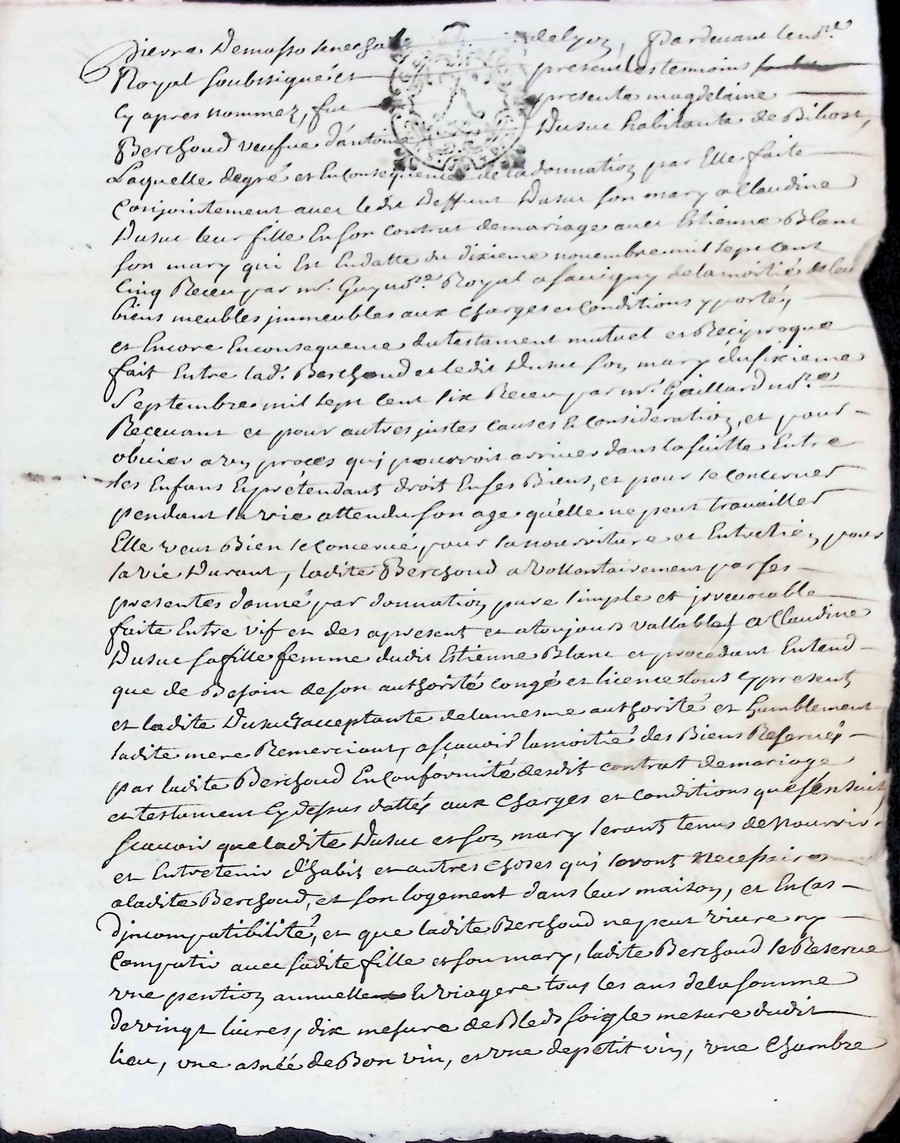 Pierre Demasso senechal de lyon, Pardevant le no.re
Royal soubsigné et present les temoins
cy apres nommez, fut presente magdelaine
Berchoud veufve d'antoine Dusuc habitante de Bibost,
Laquelle de gré et En consequence de la donnation par Elle faite
Conjointement avec ledit Deffunt Dusuc son mary a Claudine
Dusuc leur fille En son contrat de mariage avec Estienne Blanc
son mary qui Est En datte du dixieme novembre mil sept cent
cinq Receu par me. Guy no.re Royal a savigny de la moitié de leur
biens meubles immeubles aux charges et conditions y portés
et Encore En consequence du testament mutuel et Reciproque
fait Entre lad. Berchoud et ledit Dusuc son mary du sixieme
Septembre mil sept cent six Receu par me. Gaillard no.re
Recevant et pour autres justes causes et consideration, et pour
obvier a un proces qui pourroit arriver dans la suitte Entre
les Enfans Ey pretendant droit En ses Biens, et pour se concerver
pendant sa vie attendu son age qu'elle ne peut travailler
Elle veut Bien se concervé pour sa nourriture et Entretien, pour
sa vie Durant, ladite Berchoud a vollontairement par ses
presentes donné par donnation pure simple et irrevocable
faite Entre vif et des apresent et a toujours vallable, a Claudine
Dusuc sa fille femme dudit Estienne Blanc et procedant Entend
que de Besoin de son authorité congé et licence tous cy present
et ladite Dusuc acceptante de la mesme authorité et humblement
ladite mere Remerciant, a scavoir la moitié des Biens Reservés
par ladite Berchoud En conformité desdit contrat de mariage
et testament Cy dessus dattés aux charges et conditions que s'en suit
scavoir que ladite Dusuc et son mary seront tenus de Nourrir
et Entretenir d'habit et autres choses qui seront Necessaire
a ladite Berchoud, et son logement dans leur maison, et En cas
d'incompatibilité, et que ladite Berchoud ne peut vivre ny
compatir avec sadite fille et son mary, ladite Berchoud se Reserve
une pention annuelle et viagere tous les ans de la somme
de vingt livres, dix mesure de Bled soigle mesure dudit
lieu, une asnée de Bon vin, et une de petit vin, une chambre